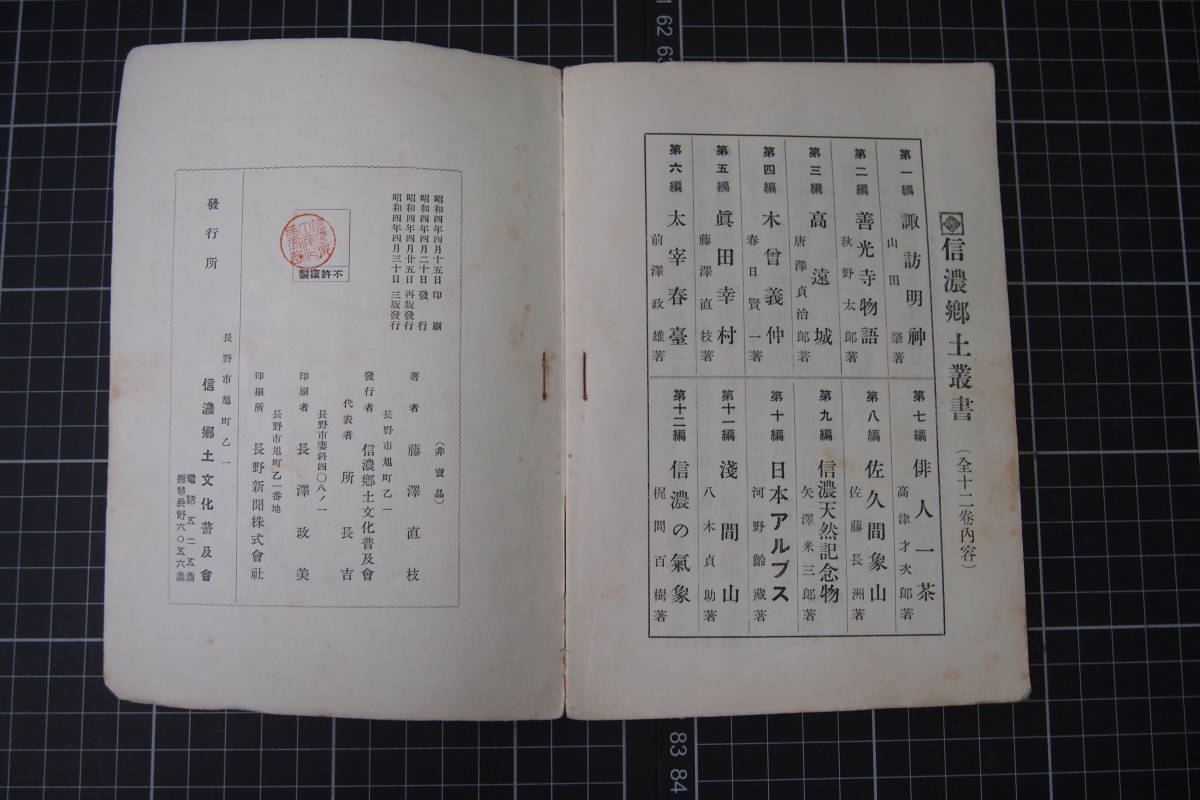 信濃郷土叢書（全十二卷內容）
第一編 諏訪明神 山田肇著
第二編 善光寺物語 秋野太郎著
第三編 高遠城 唐澤貞治郎著
第四編 木曾義仲 春日賢一著
第五編 眞田幸村 藤澤直枝著
第六編 太宰春臺 前澤政雄著
第七編 俳人一茶 高津才次郎著
第八編 佐久間象山 佐藤長洲著
第九編 信濃天然記念物 矢澤米三郎著
第十編 日本アルプス 河野齡藏著
第十一編 淺間山 八木貞助著
第十二編 信濃の氣象 梶間百樹著
昭和四年四月十五日印刷
昭和四年四月二十日發行
昭和四年四月廿五日再版發行
昭和四年四月三十日三版發行
不許複製
（非賣品）
著者 藤澤直枝
長野市旭町乙一
發行者 信濃鄉土文化普及會
代表者 所長吉
長野市妻科四〇八ノ一
印刷者 長澤政美
長野市旭町乙一番地
印刷所 長野新聞株式會社
發行所
長野市旭町乙一
信濃鄉土文化普及會
電話五二五番
振替長野六〇五六番
62 63
83 84